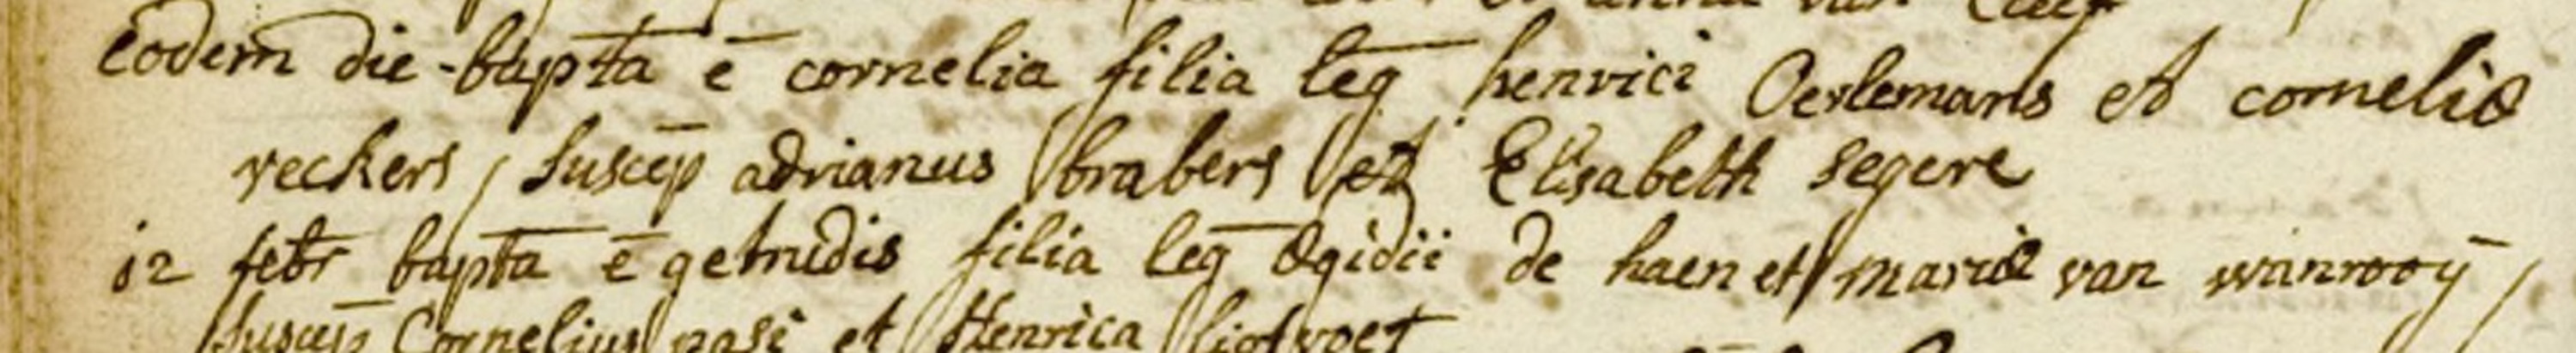 eodem die bapta e cornelia filia leg henrici Oerlemans et corneliæ
veckers, suscep adrianus brabers et Elisabeth segere
12 febr bapta e getrudis filia leg Ægidii de haen et mariæ van wanrooÿ,
suscep Cornelius pasi et Henrica